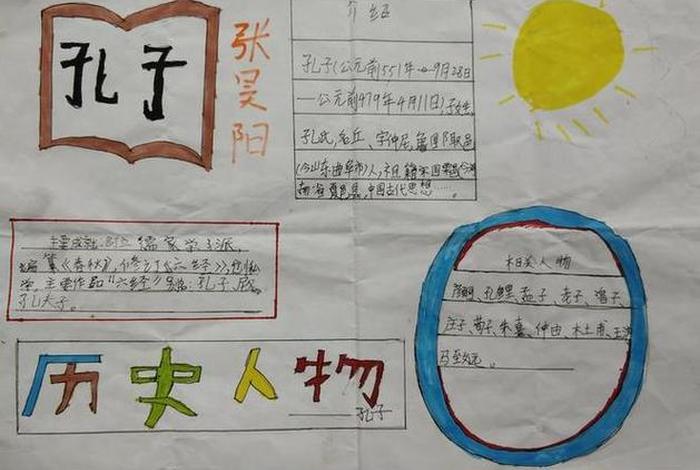 孔子
张昊阳
介绍
孔子(公元前551年9月28日
—公元前479年4月11日),子姓,
孔氏,名丘、字仲尼,鲁国陬邑
(今山东曲阜市)人,祖籍宋国栗邑
夏邑县,中国古代思想……
主要成就 儒家学派,
编纂《春秋》,修订《六经》,
主要作品"六经" 孔子,尼
孔夫子.
历史人物
孔子
相关人物
颜回、孔鲤、孟子、老子、曾子、
庄子、荀子、朱熹、仲由、